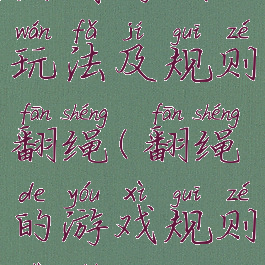 wán fǎ jí guī zé
玩法及规则
fān shéng fān shéng
翻绳(翻绳
de yóu xì guī zé
的游戏规则